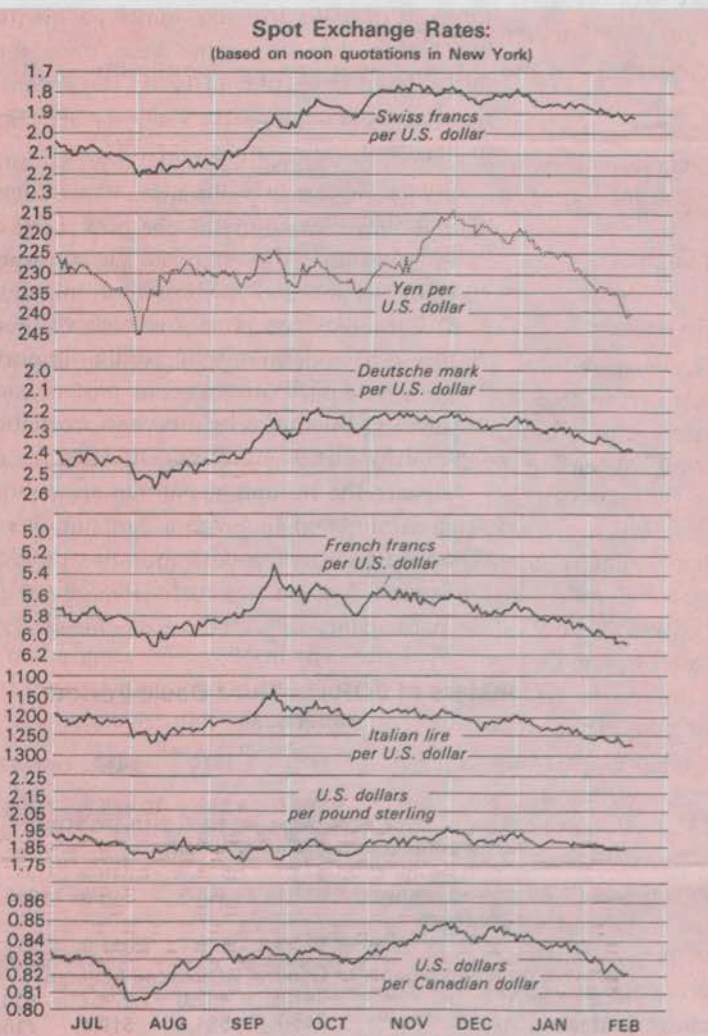 Spot Exchange Rates:
(based on noon quotations in New York)
1.7
1.8
1.9
2.0
2.1
2.2
2.3
Swiss francs
per U.S. dollar
215
220
225
230
235
240
245
Yen per
U.S. dollar
2.0
2.1
2.2
2.3
2.4
2.5
2.6
Deutsche mark
per U.S. dollar
5.0
5.2
5.4
5.6
5.8
6.0
6.2
French francs
per U.S. dollar
1100
1150
1200
1250
1300
Italian lire
per U.S. dollar
2.25
2.15
2.05
1.95
1.85
1.75
U.S. dollars
per pound sterling
0.86
0.85
0.84
0.83
0.82
0.81
0.80
U.S. dollars
per Canadian dollar
JUL AUG SEP OCT NOV DEC JAN FEB